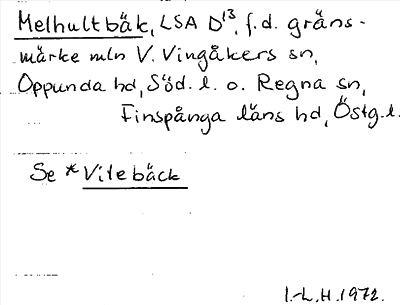 Melhultbäk, LSA D¹³, f.d. gräns-
märke mln V. Vingåkers sn,
Oppunda hd, Söd. l. o. Regna sn,
Finspånga läns hd, Östg. l.
Se *Vitebäck
I.-L. H. 1972.